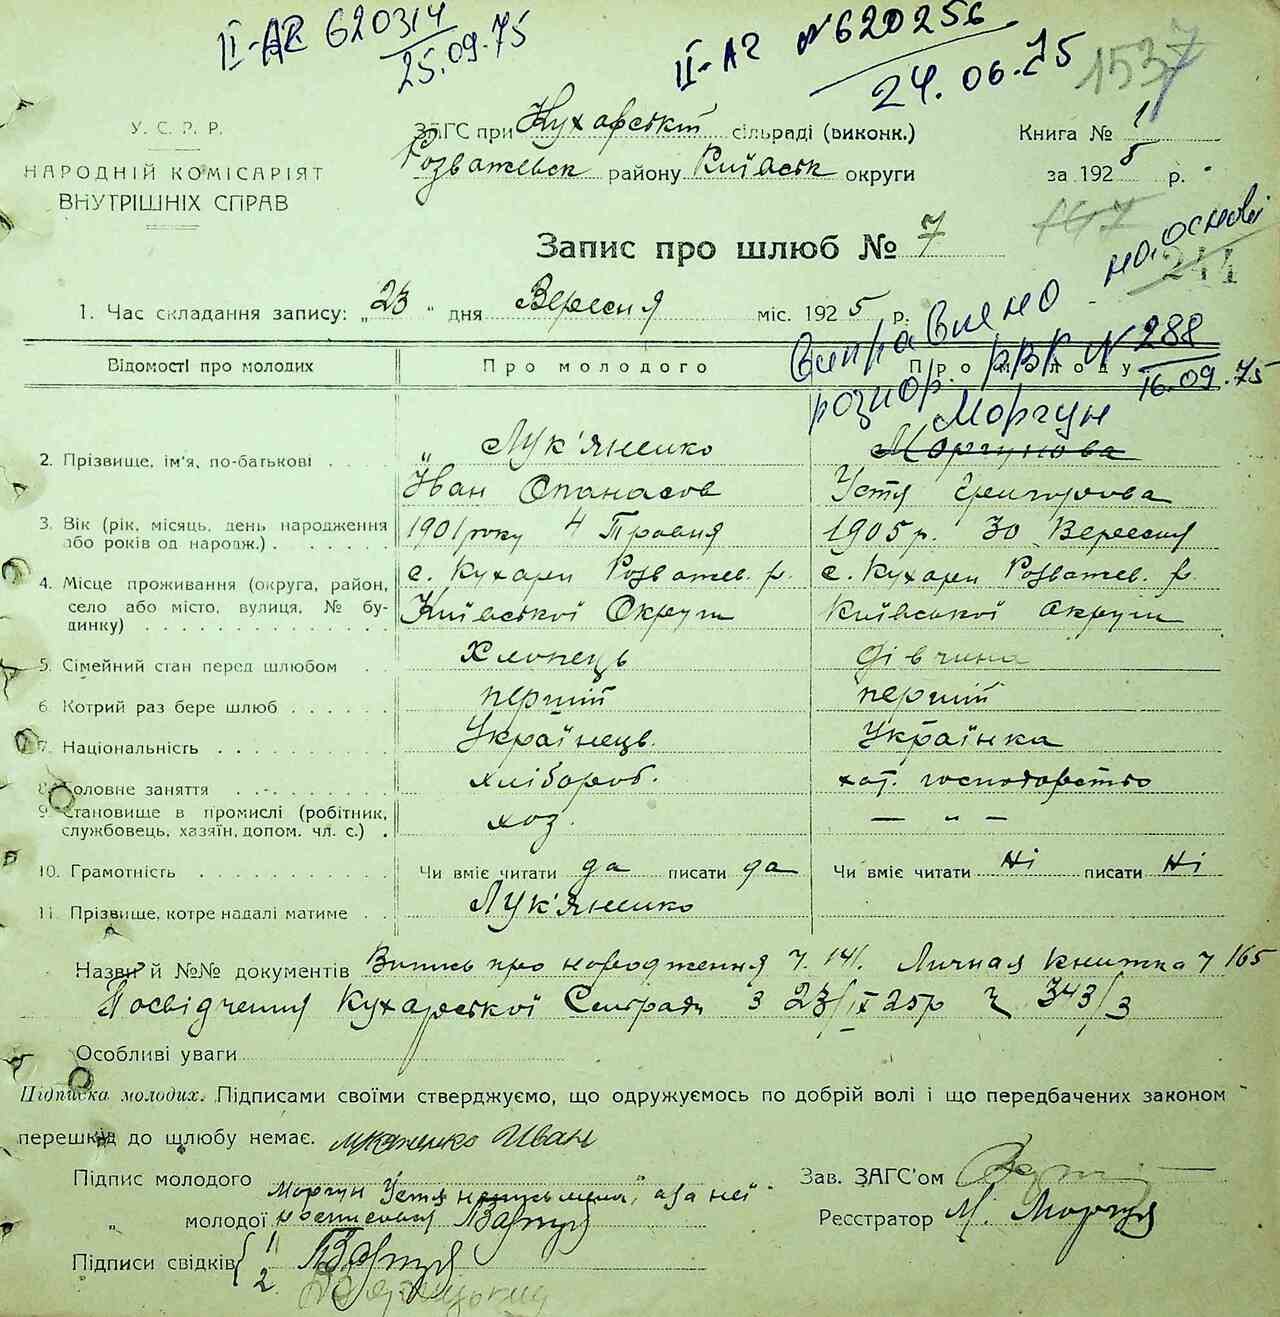 ІІ-АГ 620314
25.09.75
ІІ-АГ №620256
24.06.75
1537
У. С. Р. Р.
НАРОДНІЙ КОМІСАРІЯТ
ВНУТРІШНІХ СПРАВ
ЗАГС при Кухарській сільраді (виконк.)
Розважевськ району Київськ округи
Книга № 1
за 1925 р.
167
244
Запис про шлюб № 7
1. Час складання запису: „23" дня Вересня міс. 1925 р.
Виправлено на основі
розпор. РВК № 288
16.09.75
Відомості про молодих Про молодого Про молоду
2. Прізвище, ім'я, по-батькові Лук'яненко Моргун Моргунова
Іван Опанасов Устя Григорова
3. Вік (рік, місяць, день народження або років од нарояж.) 1901 року 4 Травня 1905 р. 30 Вересня
4. Місце проживання (округа, район, с. Кухари Розважев. р. с. Кухари Розважев. р.
село або місто, вулиця, № бу- Київської Округи Київської округи
динку)
5. Сімейний стан перед шлюбом Хлопець дівчина
6. Котрий раз бере шлюб перший перший
7. Національність Українець. Українка
8. Головне заняття хлібороб. хат. господарство
9. Становище в промислі (робітник, службовець, хазяїн, допом. чл. с.) хоз. — „ —
10. Грамотність Чи вміє читати да писати да Чи вміє читати Ні писати Ні
11. Прізвище, котре надалі матиме Лук'яненко
Назви й №№ документів Випись про народження ч. 141. Личная книжка ч 165
Посвідчення Кухарської Сельради з 23/ІХ 25р ч 343/3
Особливі уваги
Підписка молодих. Підписами своїми стверджуємо, що одружуємось по добрій волі і що передбачених законом
перешкід до шлюбу немає. Лукяненко Иван
Підпис молодого
Моргун Устя неписьменна, а за неї
„ молодої росписався
Зав. ЗАГС'ом
Реєстратор М. Моргун
Підписи свідків 1
2